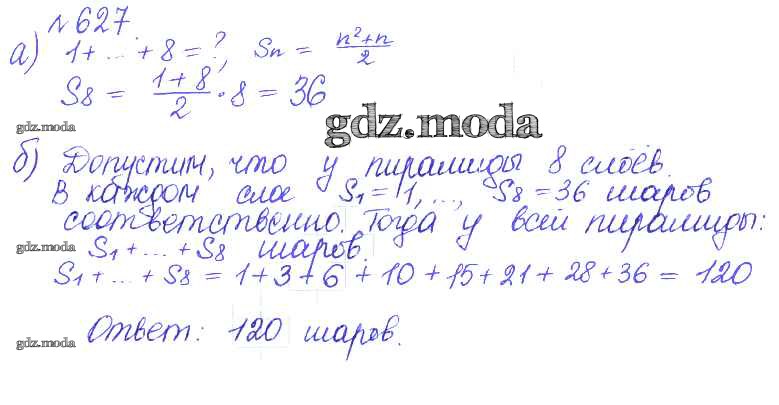 №627.
а) 1+ ... + 8 = ?, Sn = n²+n / 2
S8 = 1+8 / 2 · 8 = 36
gdz.moda
gdz.moda
б) Допустим, что у пирамиды 8 слоёв.
В каждом слое S1 = 1, ..., S8 = 36 шаров
соответственно. Тогда у всей пирамиды:
gdz.moda
S1 + ... + S8 шаров.
S1 + ... + S8 = 1+3+6+10+15+21+28+36 = 120
Ответ: 120 шаров.
gdz.moda